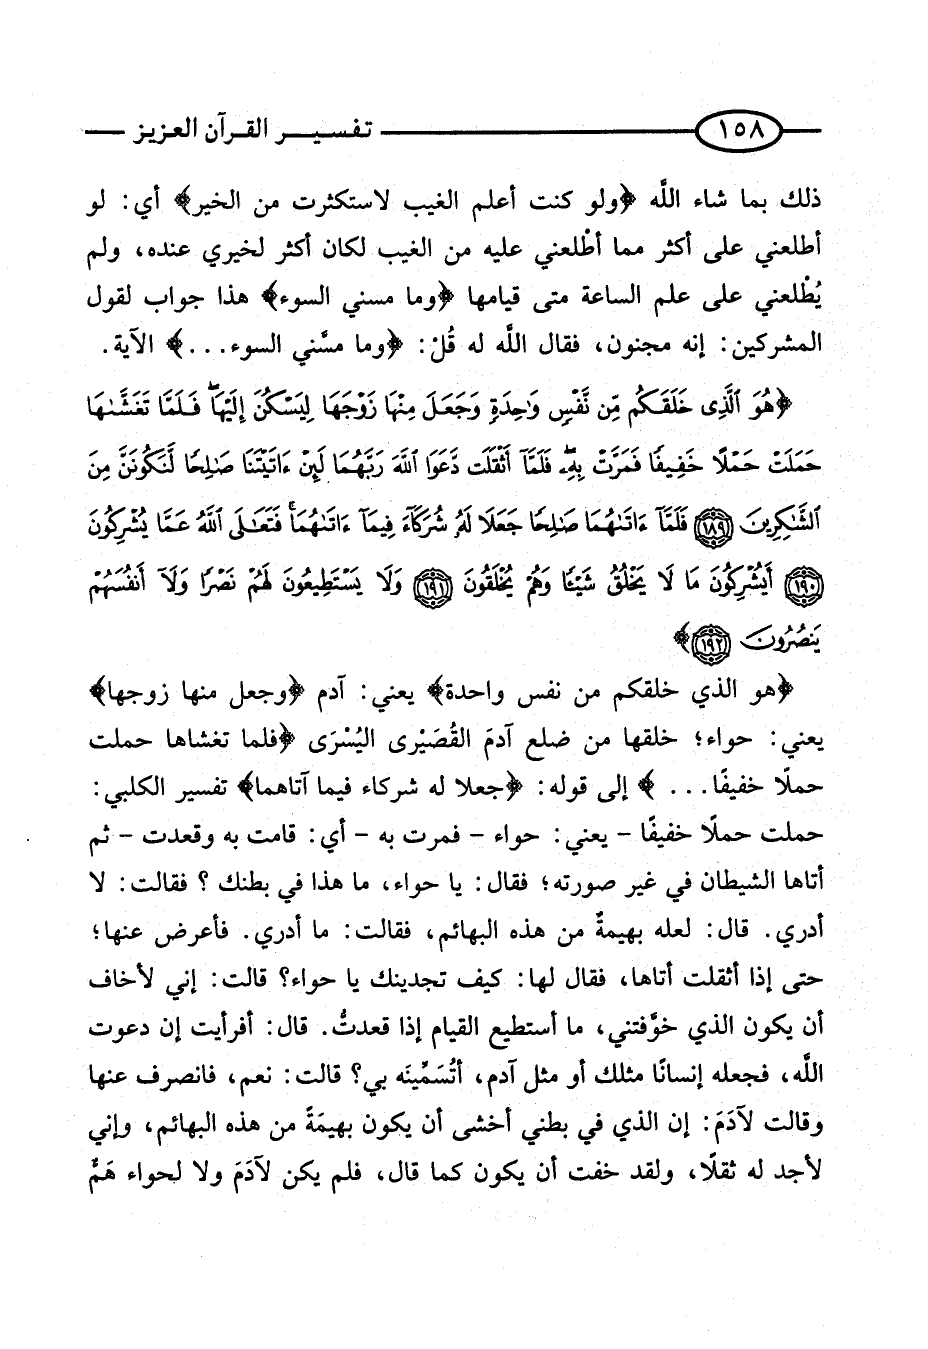 ١٥٨ تفسير القرآن العزيز
ذلك بما شاء اللَّه ﴿ولو كنت أعلم الغيب لاستكثرت من الخير﴾ أي: لو
أطلعني على أكثر مما أطْلعني عليه من الغيب لكان أكثر لخيري عنده، ولم
يُطْلعني على علم الساعة متى قيامها ﴿وما مسني السوء﴾ هذا جواب لقول
المشركين: إنه مجنون، فقال اللَّه له قُلْ: ﴿وما مسَّني السوء...﴾ الآية.
﴿هُوَ ٱلَّذِى خَلَقَكُم مِّن نَّفْسٍ وَٰحِدَةٍ وَجَعَلَ مِنْهَا زَوْجَهَا لِيَسْكُنَ إِلَيْهَاۖ فَلَمَّا تَغَشَّىٰهَا
حَمَلَتْ حَمْلًا خَفِيفًا فَمَرَّتْ بِهِۦۖ فَلَمَّآ أَثْقَلَت دَّعَوَا ٱللَّهَ رَبَّهُمَا لَئِنْ ءَاتَيْتَنَا صَٰلِحًا لَّنَكُونَنَّ مِنَ
ٱلشَّٰكِرِينَ ١٨٩ فَلَمَّآ ءَاتَىٰهُمَا صَٰلِحًا جَعَلَا لَهُۥ شُرَكَآءَ فِيمَآ ءَاتَىٰهُمَاۚ فَتَعَٰلَى ٱللَّهُ عَمَّا يُشْرِكُونَ
١٩٠ أَيُشْرِكُونَ مَا لَا يَخْلُقُ شَيْـًٔا وَهُمْ يُخْلَقُونَ ١٩١ وَلَا يَسْتَطِيعُونَ لَهُمْ نَصْرًا وَلَآ أَنفُسَهُمْ
يَنصُرُونَ ١٩٢﴾
﴿هو الذي خلقكم من نفس واحدة﴾ يعني: آدم ﴿وجعل منها زوجها﴾
يعني: حواء؛ خلقها من ضلع آدمَ القُصَيْرى اليُسْرَى ﴿فلما تغشاها حملت
حملًا خفيفًا... ﴾ إلى قوله: ﴿جعلا له شركاء فيما آتاهما﴾ تفسير الكلبي:
حملت حملًا خفيفًا - يعني: حواء - فمرت به - أي: قامت به وقعدت - ثم
أتاها الشيطان في غير صورته؛ فقال: يا حواء، ما هذا في بطنك ؟ فقالت: لا
أدري. قال: لعله بهيمةٌ من هذه البهائم، فقالت: ما أدري. فأعرض عنها؛
حتى إذا أثقلت أتاها، فقال لها: كيف تجدينك يا حواء؟ قالت: إني لأخاف
أن يكون الذي خوَّفتني، ما أستطيع القيام إذا قعدتُّ. قال: أفرأيت إن دعوت
اللَّه، فجعله إنسانًا مثلك أو مثل آدم، أتُسَمِّينَه بي؟ قالت: نعم، فانصرف عنها
وقالت لآدَمَ: إن الذي في بطني أخشى أن يكون بهيمَةً من هذه البهائم، وإني
لأجد له ثقلًا، ولقد خفت أن يكون كما قال، فلم يكن لآدَمَ ولا لحواء هَمٌّ